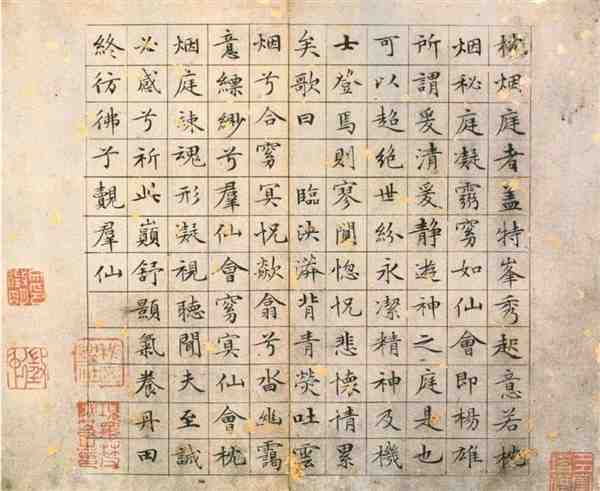 枕烟庭者蓋特峯秀起意若枕
烟秘庭凝靄窅如仙會即楊雄
所謂爰清爰静遊神之庭是也
可以超絕世紛永潔精神及機
士登焉則寥闃惚怳悲懷情累
矣歌曰 臨泱漭背青熒吐雲
烟兮合窅冥怳欻翕兮沓幽靄
意縹緲兮羣仙會窅冥仙會枕
烟庭竦魂形凝視聽聞夫至誠
必感兮祈此巔舒顥氣養丹田
終彷彿覿羣仙